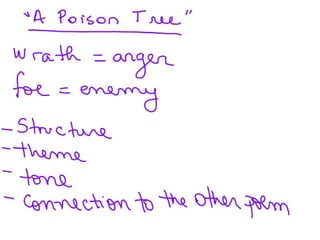 "A Poison Tree"
wrath = anger
foe = enemy
- Structure
- theme
- tone
- Connection to the other poem